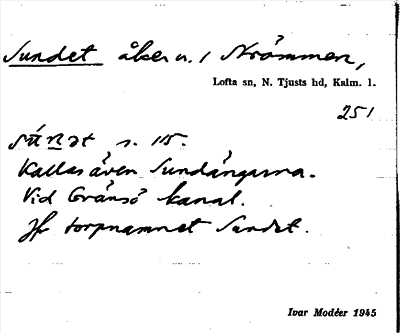 Sundet åker n. 1 Strömmen,
Lofta sn, N. Tjusts hd, Kalm. l.
251
s. 115.
Kallas även Sundängarna.
Vid Gränsö kanal.
Jfr torpnamnet Sundet.
Ivar Modéer 1945